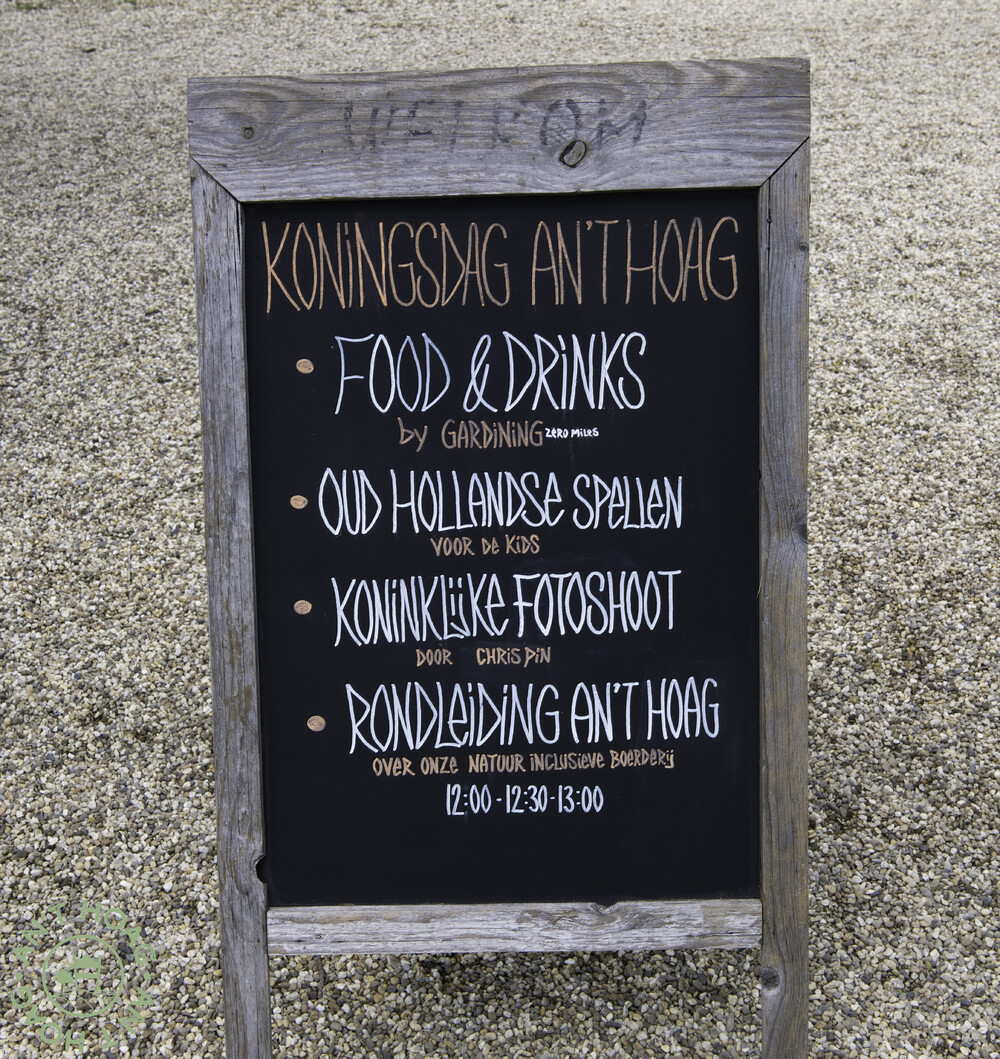 WELKOM
KONINGSDAG AN'T HOAG
FOOD & DRINKS
by GARDINING ZERO MILES
OUD HOLLANDSE SPELLEN
VOOR DE KIDS
KONINKLIJKE FOTOSHOOT
DOOR CHRIS PIN
RONDLEIDING AN'T HOAG
OVER ONZE NATUUR INCLUSIEVE BOERDERIJ
12:00 - 12:30 - 13:00